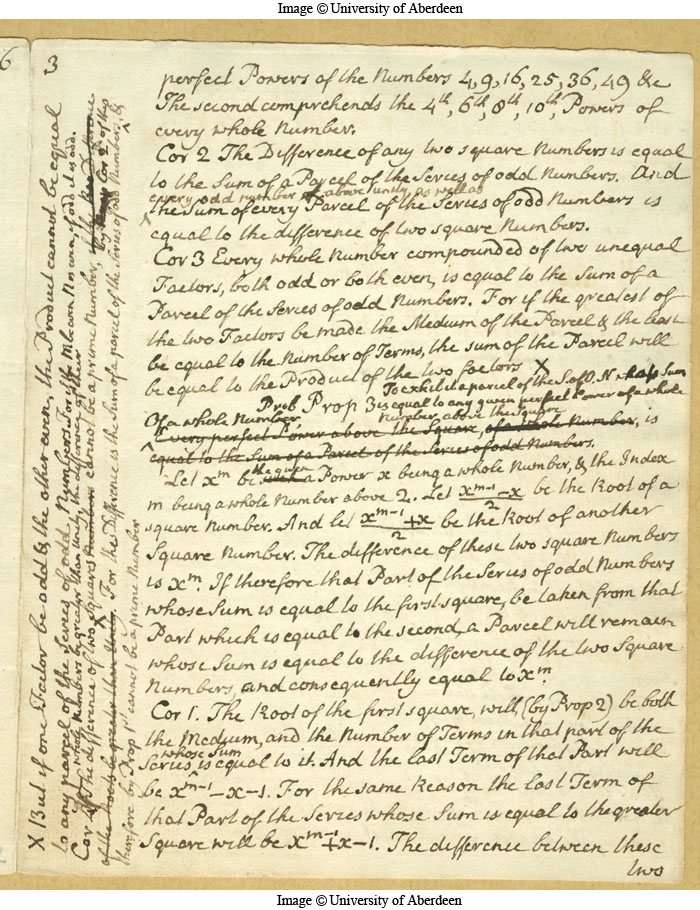 Image © University of Aberdeen
6
3
perfect Powers of the Numbers 4, 9, 16, 25, 36, 49 &c
The second comprehends the 4th, 6th, 8th, 10th, Powers of
every whole Number.
Cor 2 The Difference of any two square Numbers is equal
to the Sum of a Parcel of the Series of odd Numbers. And
every odd number above unity, as well as
the Sum of every Parcel of the Series of odd Numbers is
equal to the difference of two square Numbers.
Cor 3 Every whole Number compounded of two unequal
Factors, both odd or both even, is equal to the Sum of a
Parcel of the Series of odd Numbers. For if the greatest of
the two Factors be made the Medium of the Parcel & the least
be equal to the Number of Terms, the sum of the Parcel will
be equal to the Product of the two factors X
To exhibit a parcel of the S of O. N whose Sum
Prob Prop 3 is equal to any given perfect Power of a whole
Number, above the square
Of a whole Number
Every perfect Power above the Square, of a whole Number, is
equal to the Sum of a Parcel of the Series of odd Numbers.
the given
Let x^m be a Power x being a whole Number, & the Index
m being a whole Number above 2. Let (x^(m-1) - x)/2 be the Root of a
square Number. And let (x^(m-1) + x)/2 be the Root of another
Square Number. The difference of these two square Numbers
is x^m. If therefore that Part of the Series of odd Numbers
whose Sum is equal to the first square, be taken from that
Part which is equal to the second, a Parcel will remain
whose Sum is equal to the difference of the two Square
Numbers, and consequently equal to x^m.
Cor 1. The Root of the first square, will, (by Prop 2) be both
the Medium, and the Number of Terms in that part of the
whose Sum
Series is equal to it. And the last Term of that Part will
be x^(m-1) - x - 1. For the same Reason the last Term of
that Part of the Series whose Sum is equal to the greater
Square will be x^(m-1) + x - 1. The difference between these
two
X But if one Factor be odd & the other even, the Product cannot be equal
to any parcel of the Series of odd Numbers. For if
Cor 4 The difference of two squares cannot be a prime Number,
whole Numbers by greater than unity, the difference of their
of the Roots be greater than Unity. X For the Difference is the Sum of a parcel of the Series of odd Numbers, &
therefore by Prop 1st cannot be a prime Number
Image © University of Aberdeen